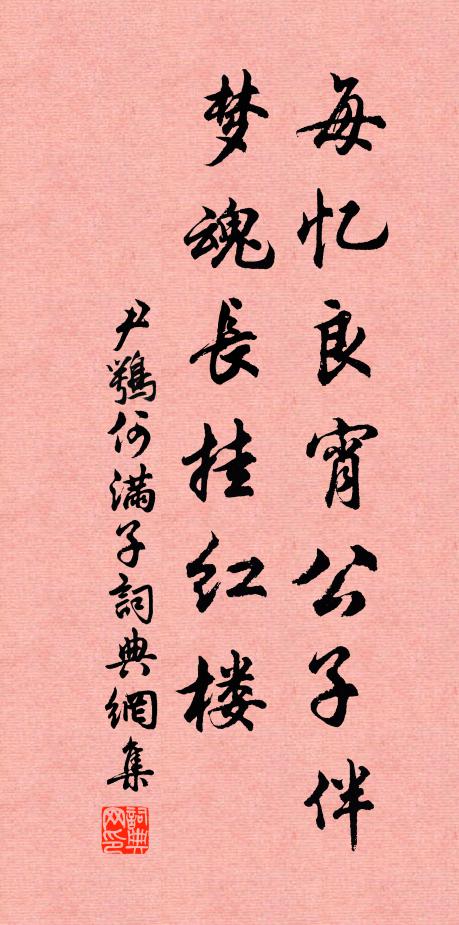 每忆良宵公子伴
梦魂长挂红楼
尹鹗何满子词典网集
词典网印